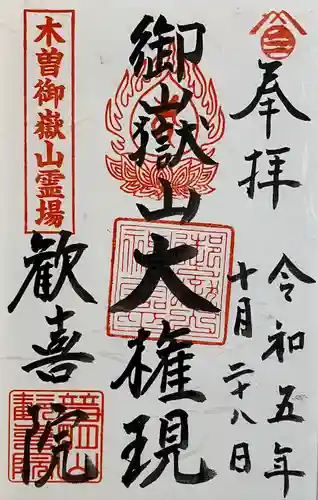 奉拝
令和五年
十月二十八日
御嶽山大権現
木曽御嶽山霊場
歓喜院